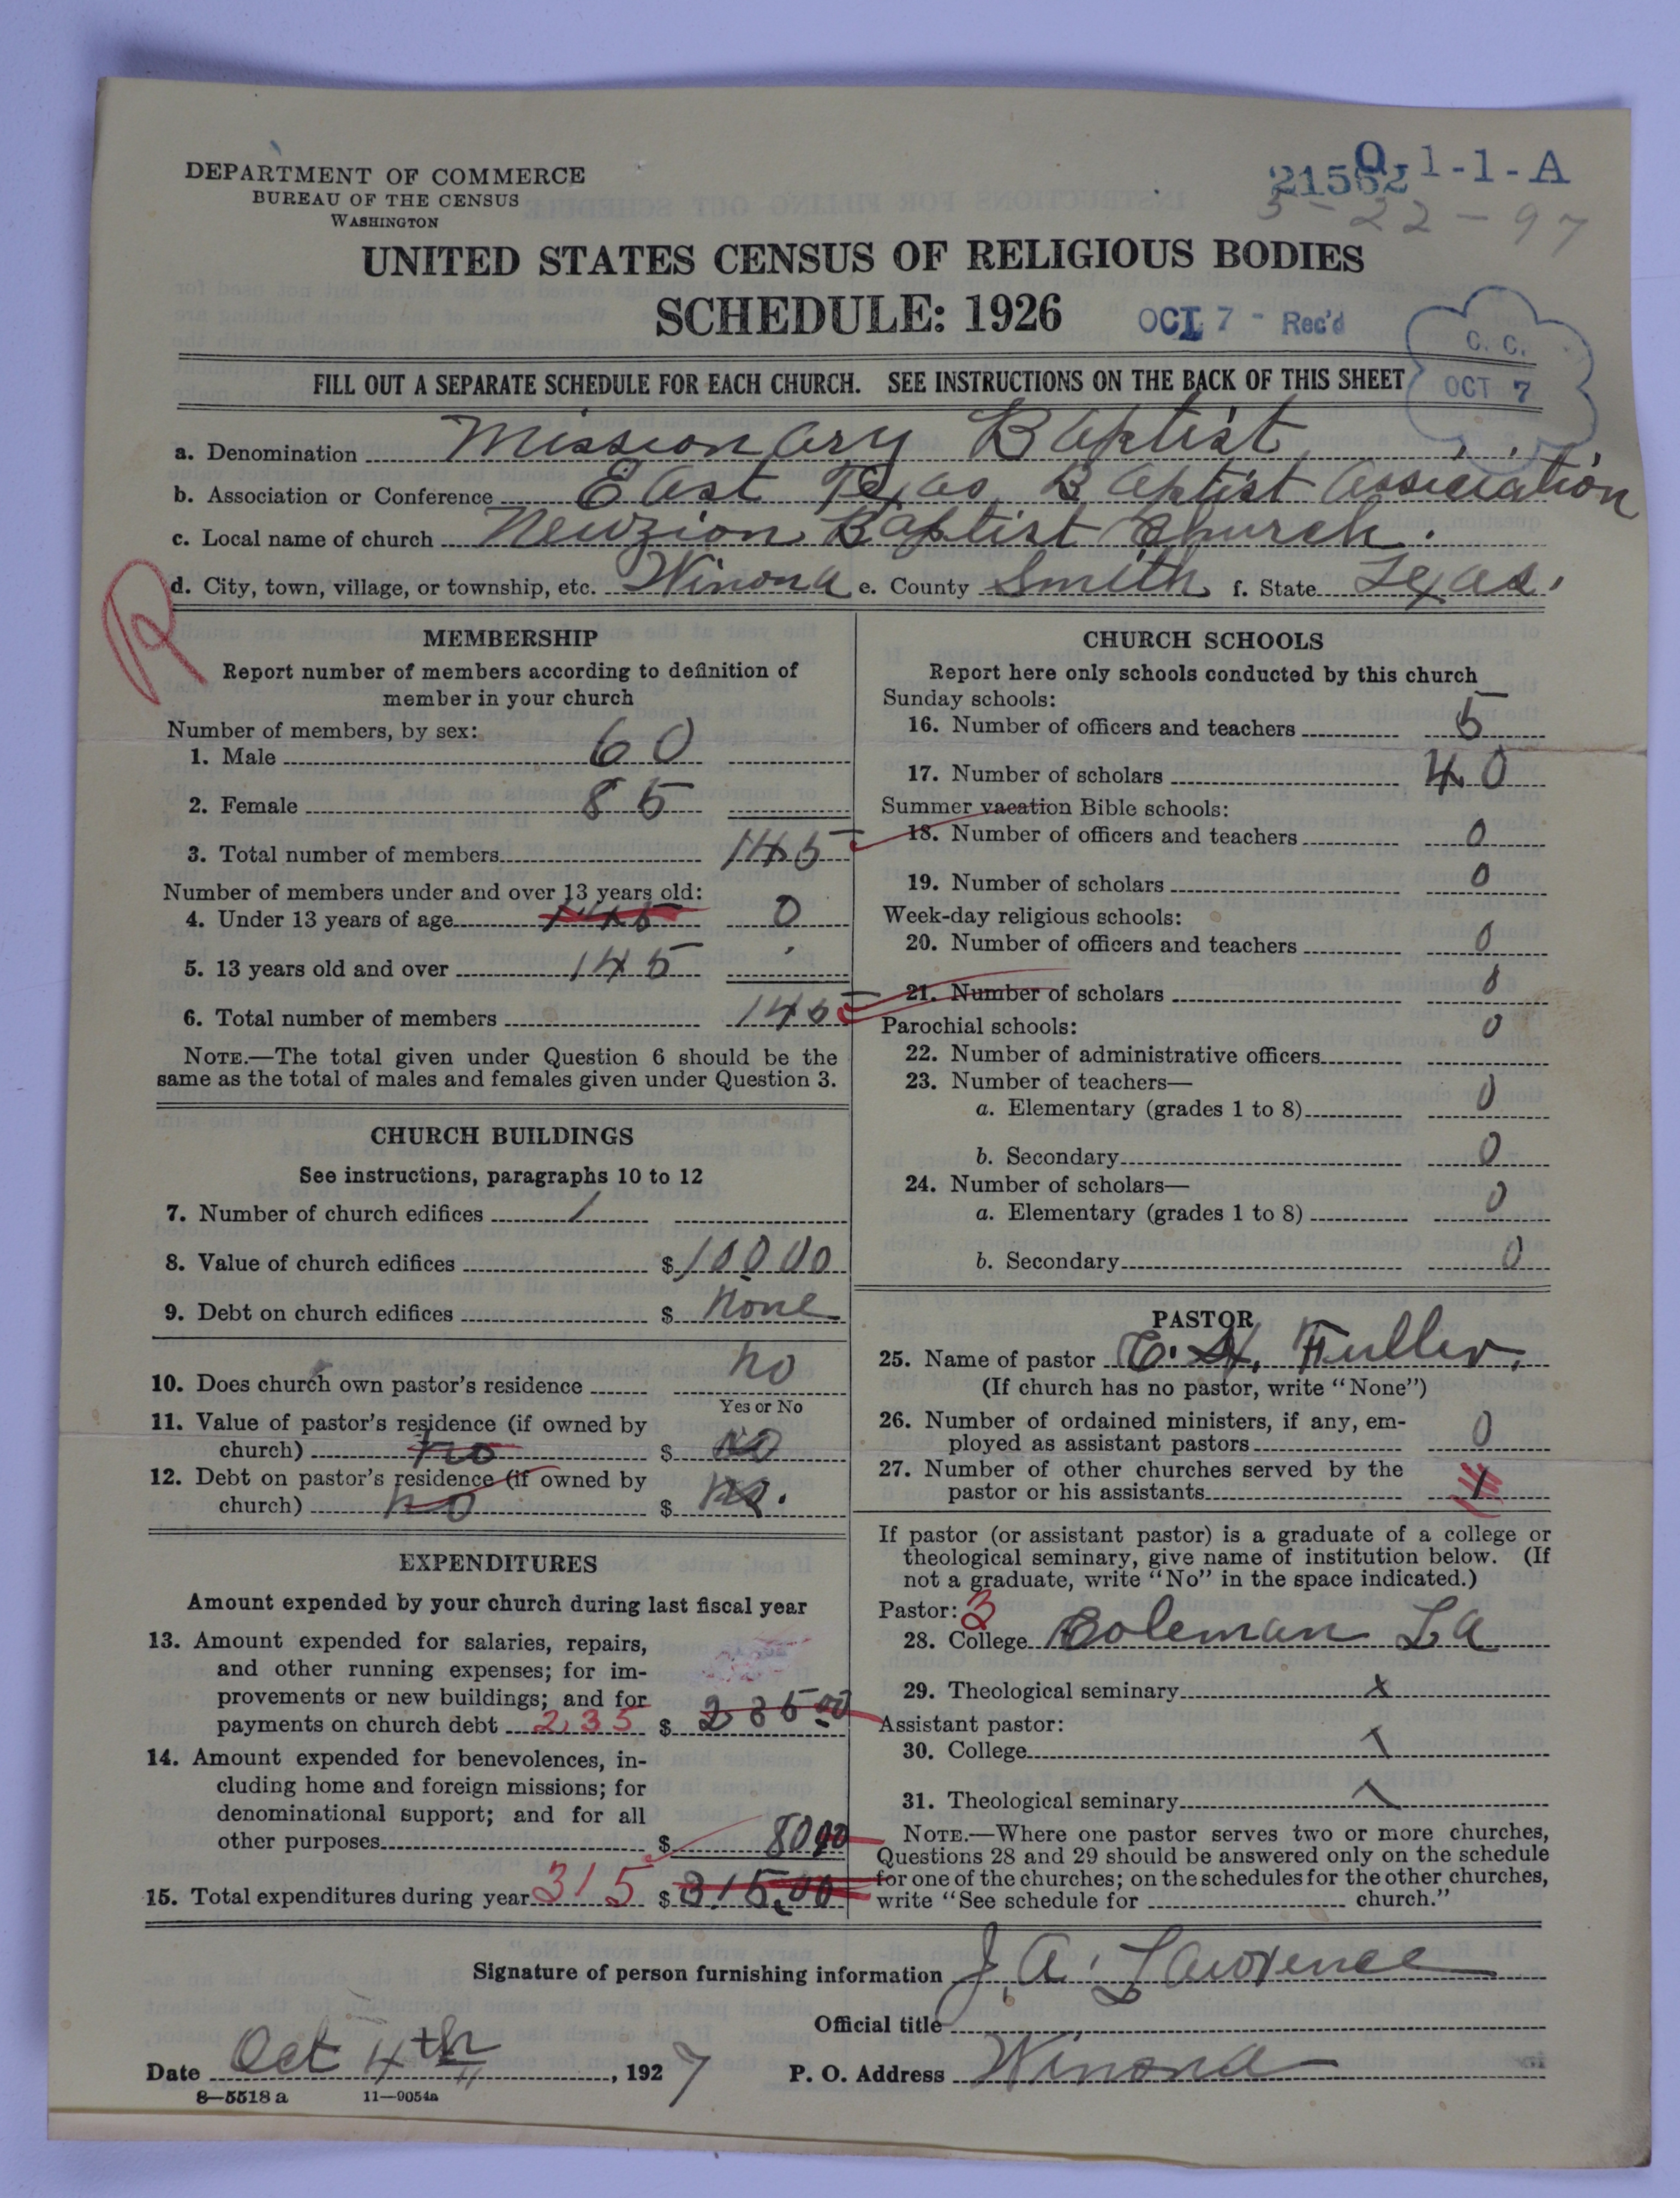 DEPARTMENT OF COMMERCE
BUREAU OF THE CENSUS
WASHINGTON
21562 0 1-1-A
3-22-97
UNITED STATES CENSUS OF RELIGIOUS BODIES
SCHEDULE: 1926
OCT 7 - Rec'd
C. C.
OCT 7
FILL OUT A SEPARATE SCHEDULE FOR EACH CHURCH. SEE INSTRUCTIONS ON THE BACK OF THIS SHEET
a. Denomination Missionary Baptist
b. Association or Conference East Texas Baptist Association
c. Local name of church Newzion Baptist Church.
d. City, town, village, or township, etc. Winona e. County Smith f. State Texas.
R
MEMBERSHIP
Report number of members according to definition of
member in your church
Number of members, by sex:
1. Male 60
2. Female 85
3. Total number of members 145
Number of members under and over 13 years old:
4. Under 13 years of age 145 0
5. 13 years old and over 145
6. Total number of members 145
NOTE.—The total given under Question 6 should be the
same as the total of males and females given under Question 3.
CHURCH BUILDINGS
See instructions, paragraphs 10 to 12
7. Number of church edifices 1
8. Value of church edifices $ 1000 00
9. Debt on church edifices $ None
10. Does church own pastor's residence no
Yes or No
11. Value of pastor's residence (if owned by
church) no $ no
12. Debt on pastor's residence (if owned by
church) no $ no.
EXPENDITURES
Amount expended by your church during last fiscal year
13. Amount expended for salaries, repairs,
and other running expenses; for im-
provements or new buildings; and for
payments on church debt 235 $ 235 00
14. Amount expended for benevolences, in-
cluding home and foreign missions; for
denominational support; and for all
other purposes $ 80 00
15. Total expenditures during year 315 $ 315.00
CHURCH SCHOOLS
Report here only schools conducted by this church
Sunday schools:
16. Number of officers and teachers 5
17. Number of scholars 40
Summer vacation Bible schools:
18. Number of officers and teachers 0
19. Number of scholars 0
Week-day religious schools:
20. Number of officers and teachers 0
21. Number of scholars 0
Parochial schools:
22. Number of administrative officers 0
23. Number of teachers—
a. Elementary (grades 1 to 8) 0
b. Secondary 0
24. Number of scholars—
a. Elementary (grades 1 to 8) 0
b. Secondary 0
PASTOR
25. Name of pastor C. H. Fuller.
(If church has no pastor, write "None")
26. Number of ordained ministers, if any, em-
ployed as assistant pastors 0
27. Number of other churches served by the
pastor or his assistants 1
If pastor (or assistant pastor) is a graduate of a college or
theological seminary, give name of institution below. (If
not a graduate, write "No" in the space indicated.)
Pastor: 3
28. College Coleman La
29. Theological seminary x
Assistant pastor:
30. College
31. Theological seminary
NOTE.—Where one pastor serves two or more churches,
Questions 28 and 29 should be answered only on the schedule
for one of the churches; on the schedules for the other churches,
write "See schedule for church."
Signature of person furnishing information J. A. Lawrence
Official title
Date Oct 4th, 1927 P. O. Address Winona
8—5518 a 11—9054a